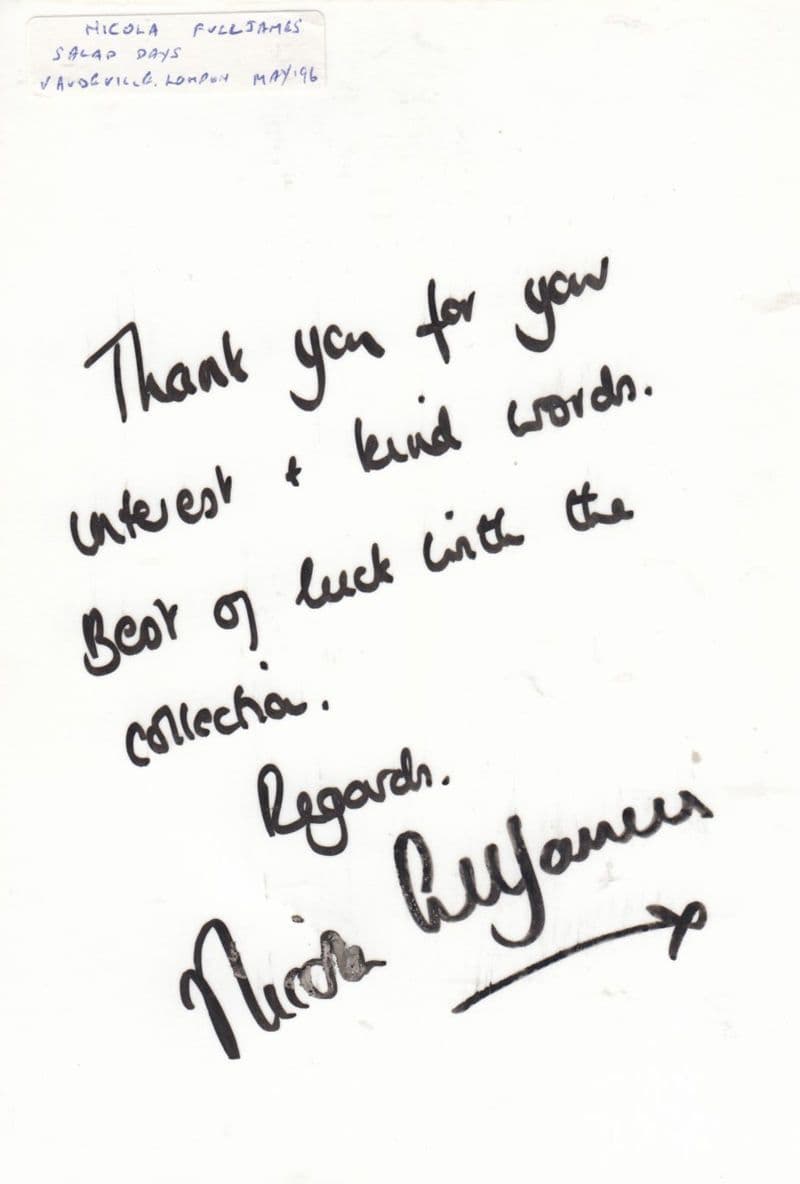 NICOLA FULLJAMES
SALAD DAYS
VAUDEVILLE. LONDON MAY '96
Thank you for your
interest + kind words.
Best of luck with the
collection.
Regards.
Nicola Fulljames